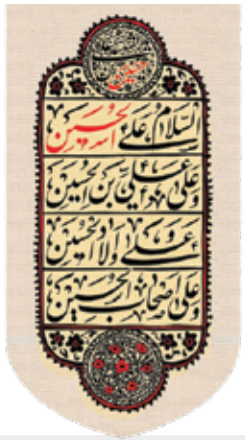 السلام علی الحسین
وعلی علی بن الحسین
وعلی اولاد الحسین
وعلی اصحاب الحسین